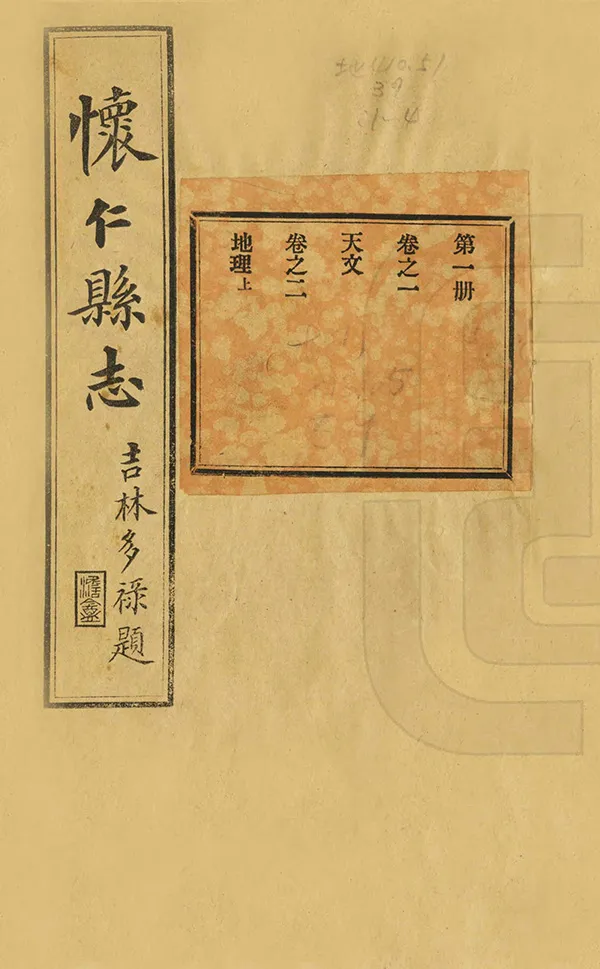 懷仁縣志
吉林多祿題
第一册
卷之一
天文
卷之二
地理上
39
1-4
5